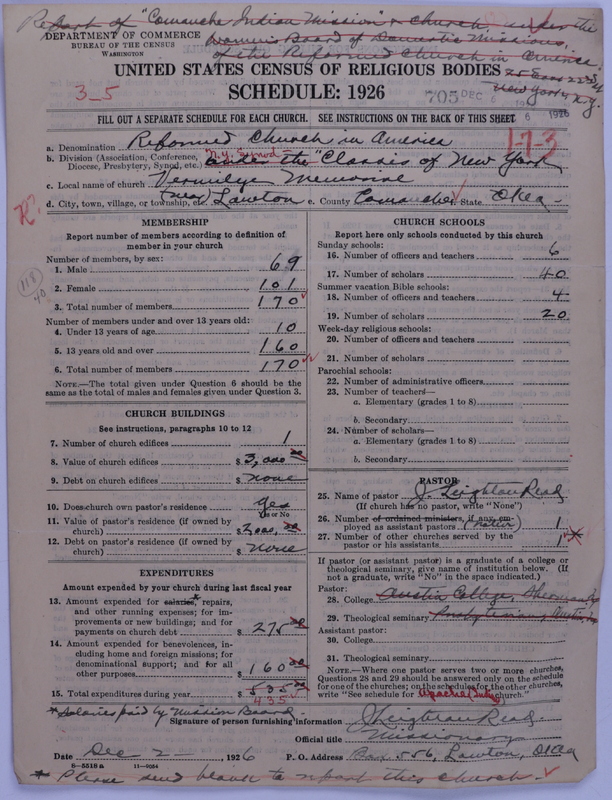 Report of "Comanche Indian Mission" & church, under the
Women's Board of Domestic Missions,
of the Reformed Church in America.
25 East 22nd St
New York, N.Y.
DEPARTMENT OF COMMERCE
BUREAU OF THE CENSUS
WASHINGTON
UNITED STATES CENSUS OF RELIGIOUS BODIES
SCHEDULE: 1926
3_5
705 DEC 6 1926
FILL OUT A SEPARATE SCHEDULE FOR EACH CHURCH. SEE INSTRUCTIONS ON THE BACK OF THIS SHEET
1-7-3
a. Denomination Reformed Church in America
b. Division (Association, Conference, Diocese, Presbytery, Synod, etc.) N.Y. Synod - the "Classis of New York
c. Local name of church Vermilye Memorial
d. City, town, village, or township, Near Lawton e. County Comanche State Okla.
MEMBERSHIP
Report number of members according to definition of
member in your church
Number of members, by sex:
1. Male 69
2. Female 101
3. Total number of members 170
Number of members under and over 13 years old:
4. Under 13 years of age 10
5. 13 years old and over 160
6. Total number of members 170
NOTE.—The total given under Question 6 should be the
same as the total of males and females given under Question 3.
CHURCH BUILDINGS
See instructions, paragraphs 10 to 12
7. Number of church edifices 1
8. Value of church edifices $ 3,000 00
9. Debt on church edifices $ none
10. Does church own pastor's residence? yes
Yes or No
11. Value of pastor's residence (if owned by
church) $ 3000.00
12. Debt on pastor's residence (if owned by
church) $ none
EXPENDITURES
Amount expended by your church during last fiscal year
13. Amount expended for salaries,* repairs,
and other running expenses; for im-
provements or new buildings; and for
payments on church debt $ 275 00
14. Amount expended for benevolences, in-
cluding home and foreign missions; for
denominational support; and for all
other purposes $ 160 00
15. Total expenditures during year $ 535 00
435
CHURCH SCHOOLS
Report here only schools conducted by this church
Sunday schools:
16. Number of officers and teachers 6
17. Number of scholars 40
Summer vacation Bible schools:
18. Number of officers and teachers 4
19. Number of scholars 20
Week-day religious schools:
20. Number of officers and teachers
21. Number of scholars
Parochial schools:
22. Number of administrative officers
23. Number of teachers—
a. Elementary (grades 1 to 8)
b. Secondary
24. Number of scholars—
a. Elementary (grades 1 to 8)
b. Secondary
PASTOR
25. Name of pastor J. Leighton Read
(If church has no pastor, write "None")
26. Number of ordained ministers, if any, em-
ployed as assistant pastors 1
27. Number of other churches served by the
pastor or his assistants 1 *
If pastor (or assistant pastor) is a graduate of a college or
theological seminary, give name of institution below. (If
not a graduate, write "No" in the space indicated.)
Pastor:
28. College Austin College, Sherman
29. Theological seminary Presbyterian, Austin,
Assistant pastor:
30. College
31. Theological seminary
NOTE.—Where one pastor serves two or more churches,
Questions 28 and 29 should be answered only on the schedule
for one of the churches; on the schedule for the other churches,
write "See schedule for Apache church."
* Salaries paid by Mission Board
Signature of person furnishing information J Leighton Read
Official title Missionary
Date Dec 2 1926 P. O. Address Box 556, Lawton, Okla
8—5518a 11—9054
* Please send blank to report this church.